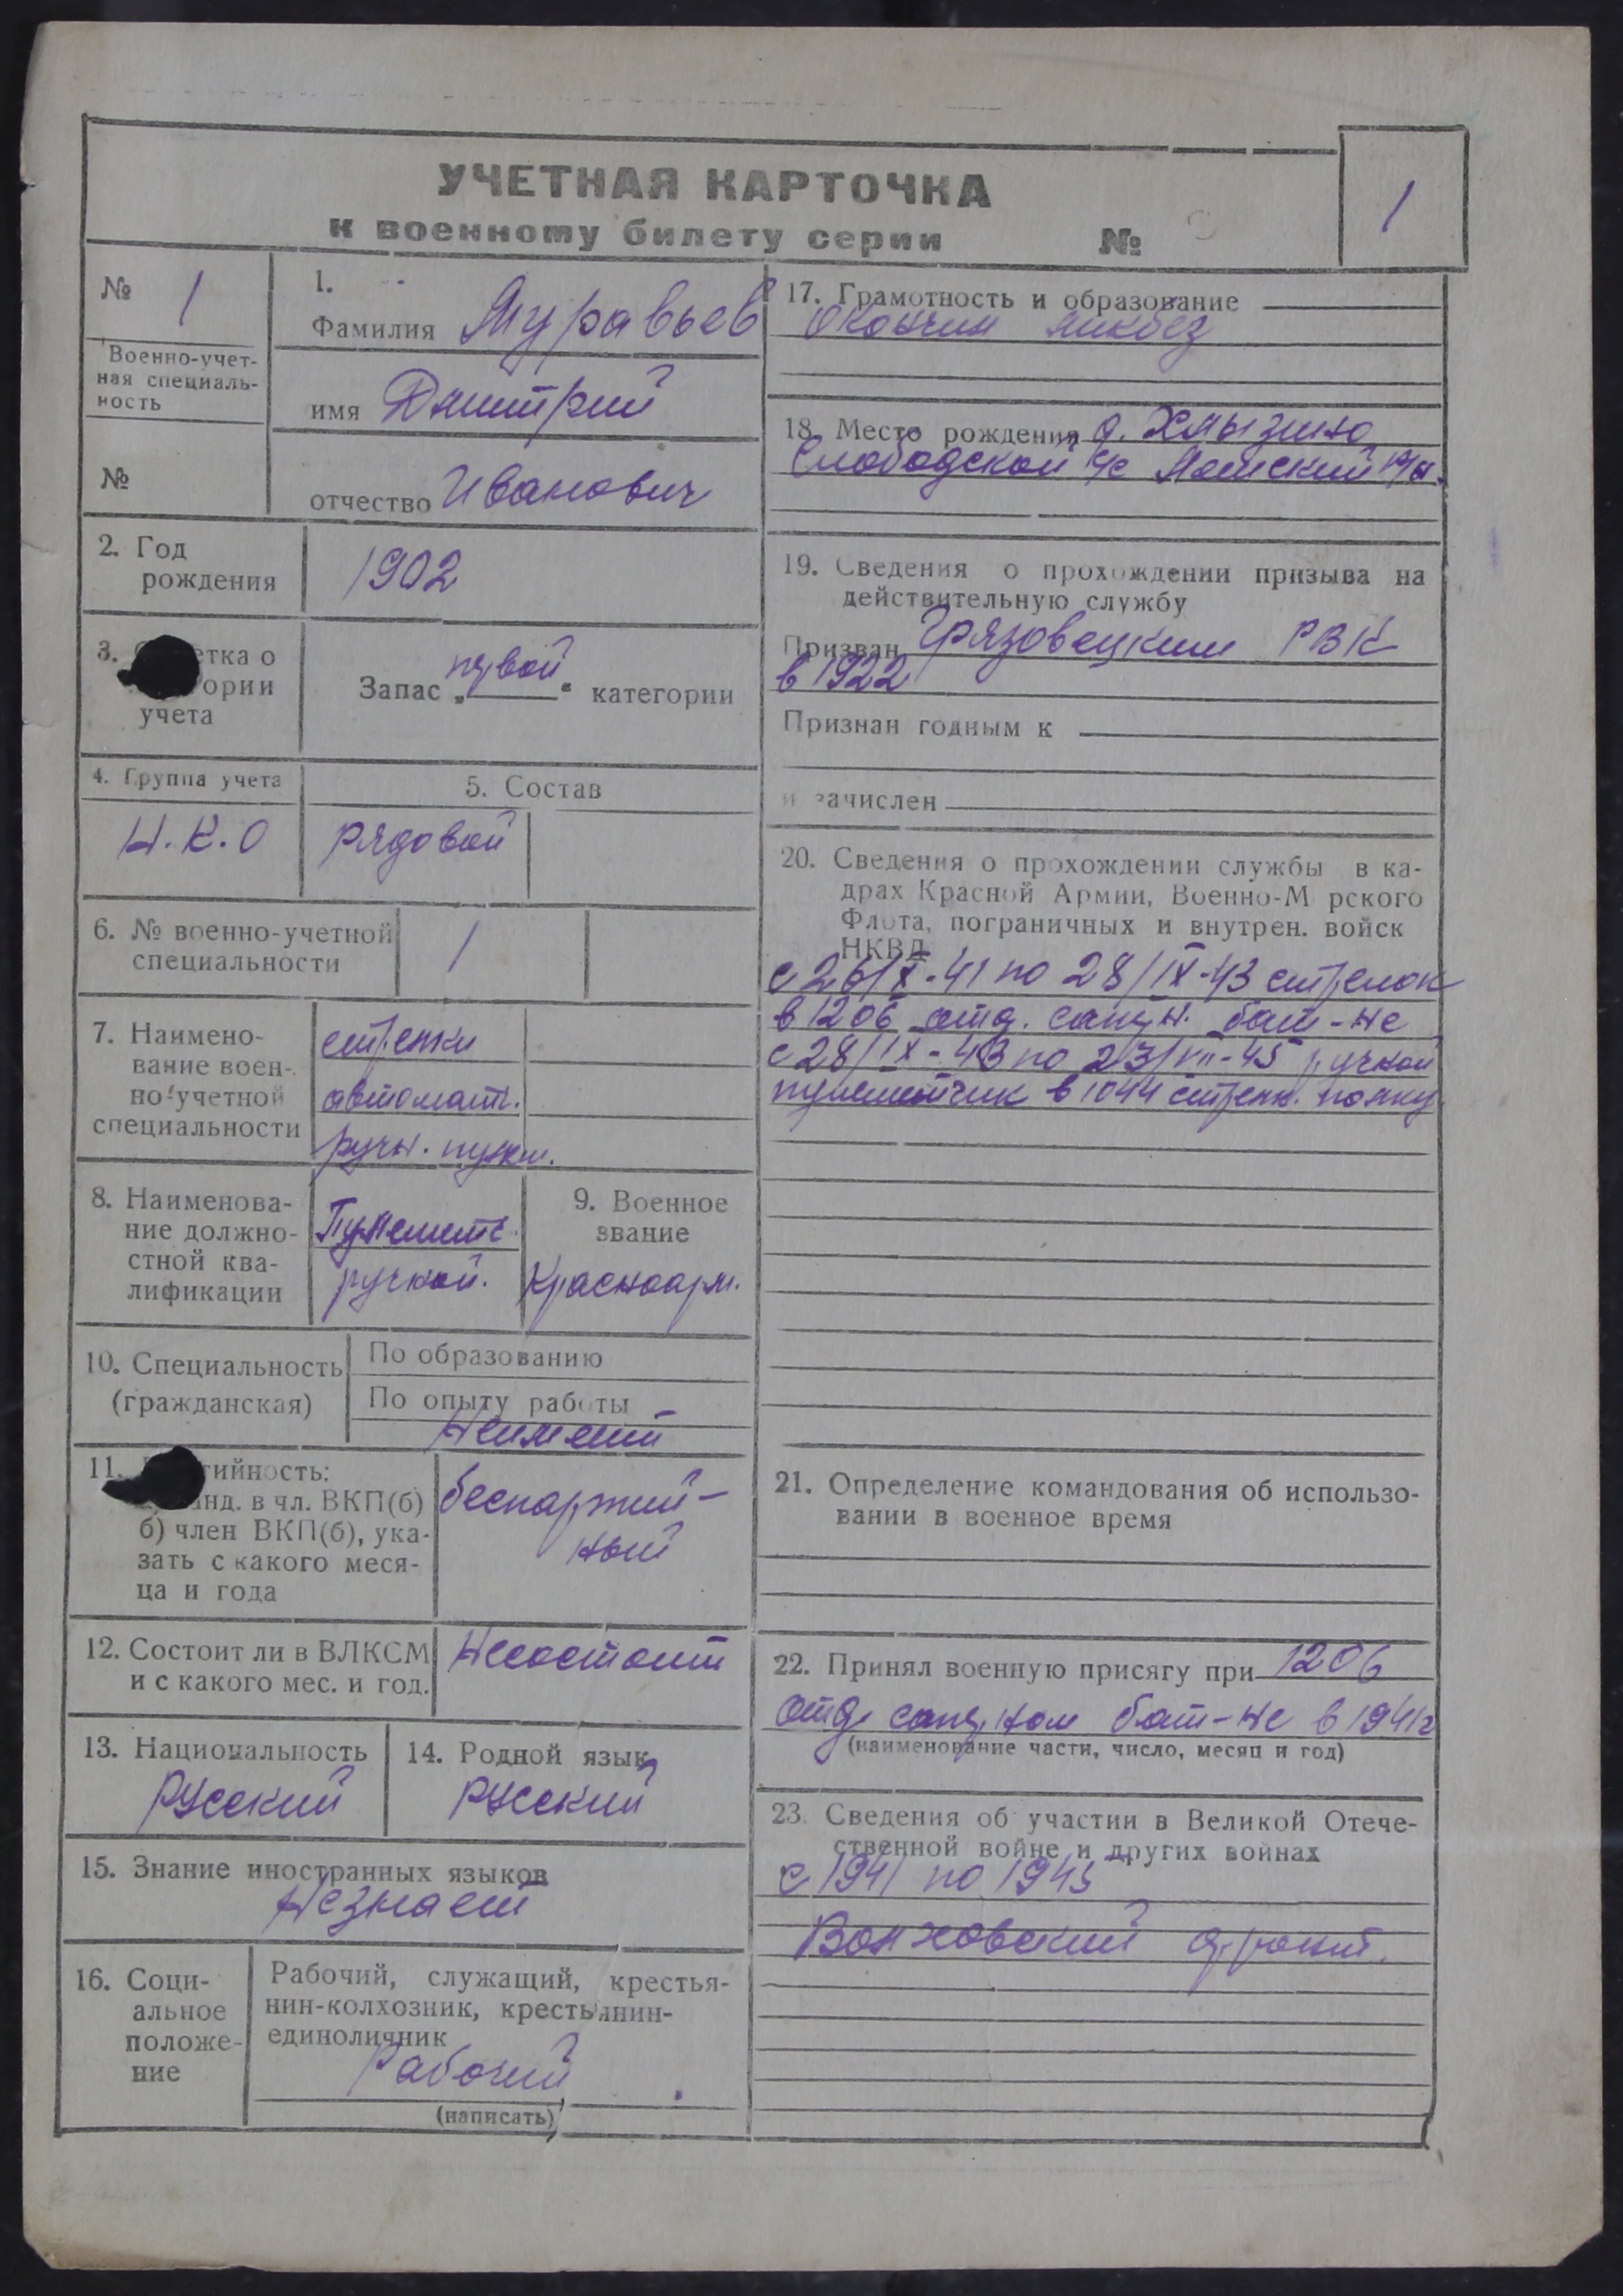 УЧЕТНАЯ КАРТОЧКА
к военному билету серии №
1
№ 1
Военно-учет-
ная специаль-
ность
№
1.
Фамилия Муравьев
имя Дмитрий
отчество Иванович
2. Год
рождения
1902
3. тка о
ории
учета
Запас „первой“ категории
4. Группа учета
Н.К.О
5. Состав
рядовой
6. № военно-учетной
специальности
1
7. Наимено-
вание воен-
но-учетной
специальности
стрелки
автомат.
ручн. пулем.
8. Наименова-
ние должно-
стной ква-
лификации
Пулемет.
ручной.
9. Военное
звание
Красноарм.
10. Специальность
(гражданская)
По образованию
По опыту работы
Неимеет
11. тийность:
анд. в чл. ВКП(б)
б) член ВКП(б), ука-
зать с какого меся-
ца и года
беспартий-
ный
12. Состоит ли в ВЛКСМ
и с какого мес. и год.
Несостоит
13. Национальность
Русский
14. Родной язык
Русский
15. Знание иностранных языков
Незнает
16. Соци-
альное
положе-
ние
Рабочий, служащий, крестья-
нин-колхозник, крестьянин-
единоличник
Рабочий
(написать)
17. Грамотность и образование
Окончил ликбез
18. Место рождения д. Хмызино
Слободской с/с Лежский р/н.
19. Сведения о прохождении призыва на
действительную службу
Призван Грязовецким РВК
в 1922
Признан годным к
и зачислен
20. Сведения о прохождении службы в ка-
драх Красной Армии, Военно-М рского
Флота, пограничных и внутрен. войск
НКВД
с 26/X-41 по 28/IX-43 стрелок
в 1206 отд. саперн. бат-не
с 28/IX-43 по 23/VII-45 ручной
пулеметчик в 1044 стрелк. полку
21. Определение командования об использо-
вании в военное время
22. Принял военную присягу при 1206
отд. саперном бат-не в 1941г
(наименование части, число, месяц и год)
23. Сведения об участии в Великой Отече-
ственной войне и других войнах
с 1941 по 1945
Волховский фронт.